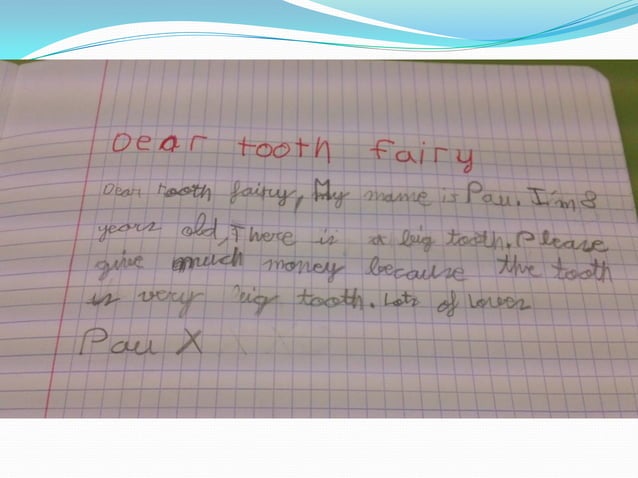 Dear tooth fairy
Dear tooth fairy, My name is Pau. I'm 8
years old, There is a big tooth. Please
give much money because the tooth
is very big tooth. Lots of loves
Pau X